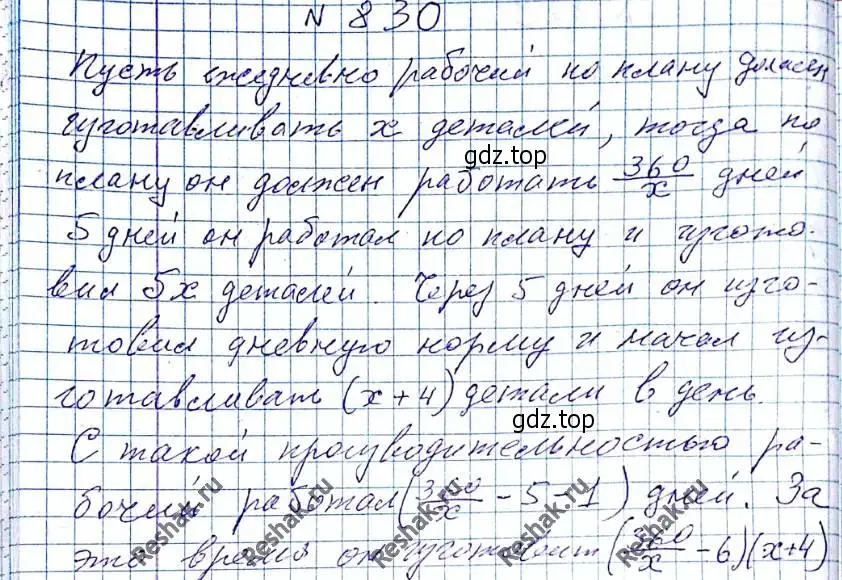 N 830
Пусть ежедневно рабочий по плану должен
изготавливать x деталей, тогда по
gdz.top
плану он должен работать 360/x дней
5 дней он работал по плану и изгото-
вил 5x деталей. Через 5 дней он изго-
товил дневную норму и начал из-
готавливать (x+4) детали в день.
gdz.top
С такой производительностью ра-
бочий работал (360/x - 5 - 1) дней. За
это время он изготовит (360/x - 6)(x+4)
Reshak.ru Reshak.ru Reshak.ru Reshak.ru